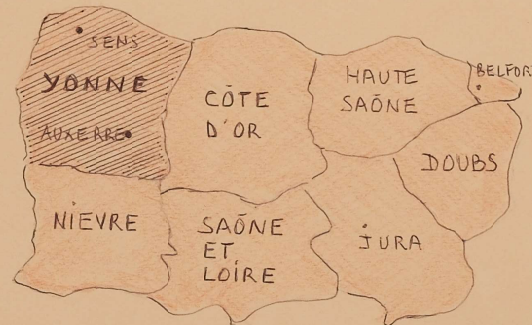 SENS
YONNE
AUXERRE
CÔTE
D'OR
HAUTE
SAÔNE
BELFORT
DOUBS
NIEVRE
SAÔNE
ET
LOIRE
JURA